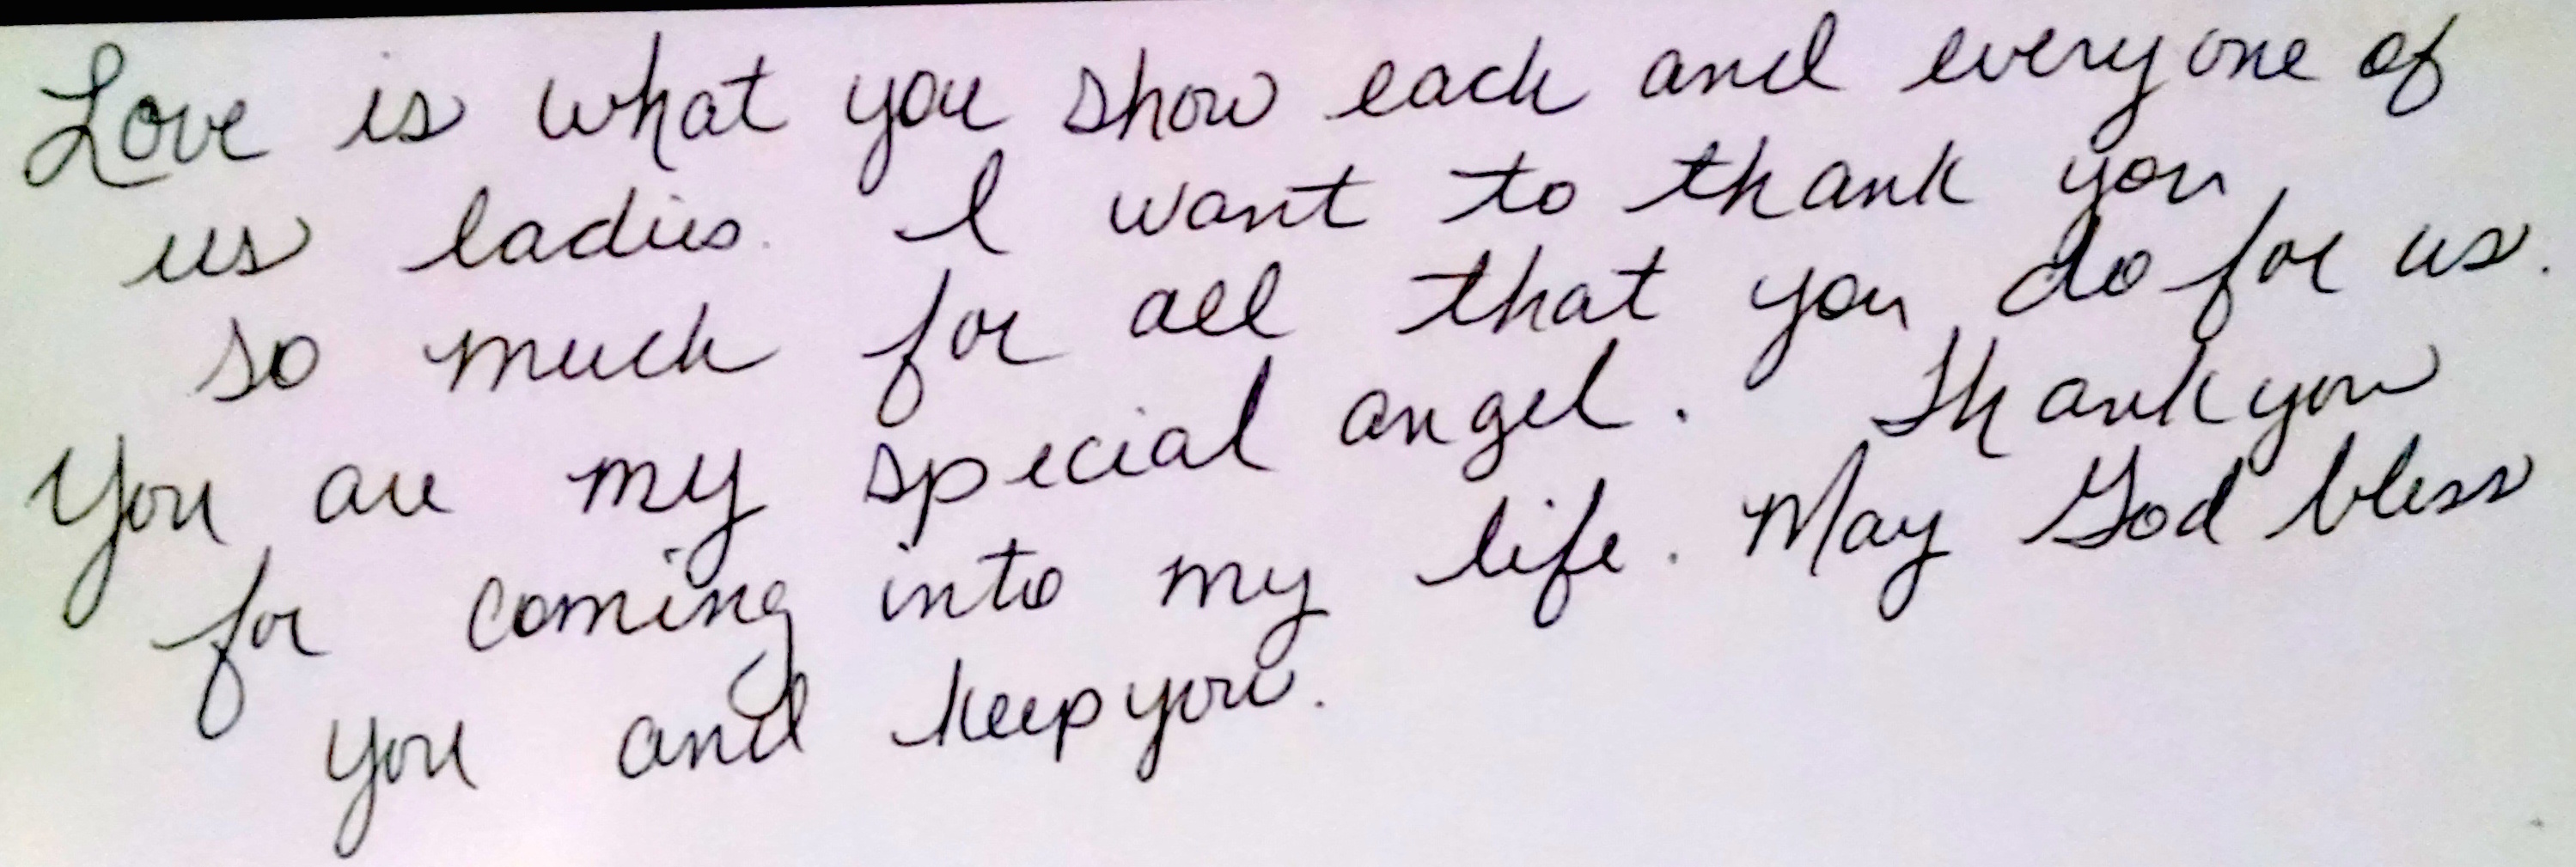 Love is what you show each and everyone of
us ladies. I want to thank you
so much for all that you do for us.
You are my special angel. Thank you
for coming into my life. May God bless
you and keep you.